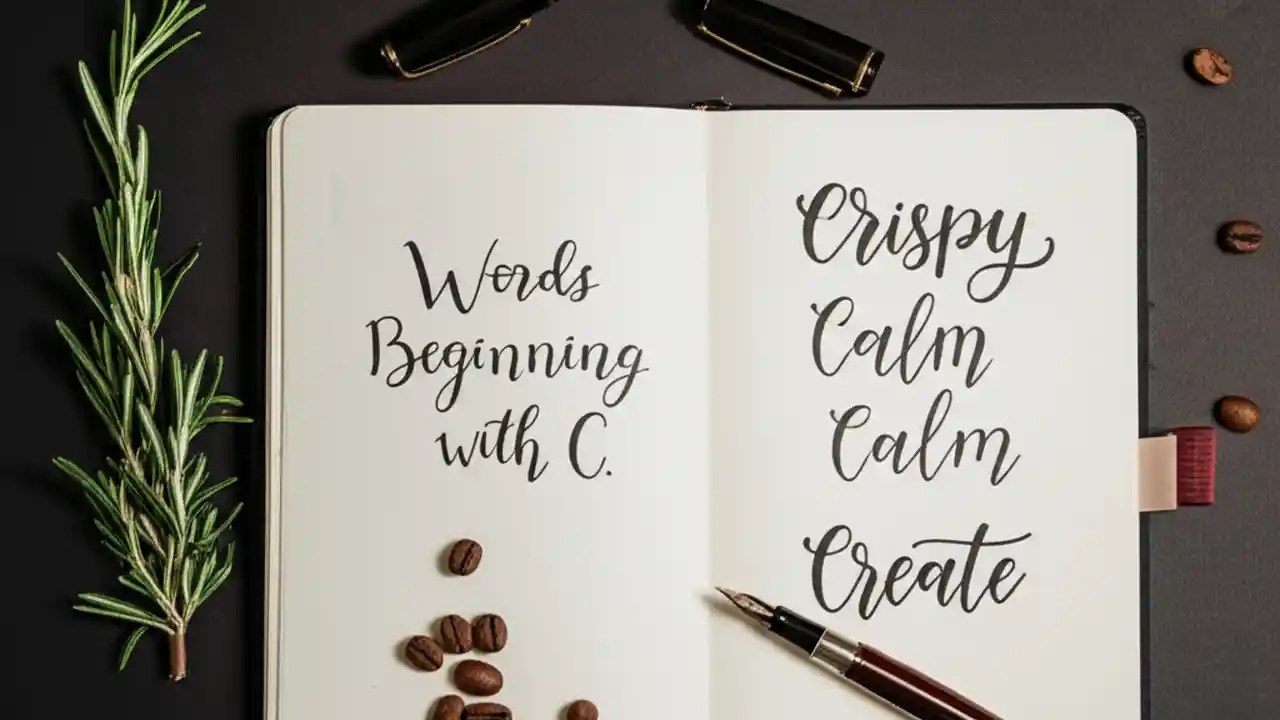 Words
Beginning
with C.
Crispy
Calm
Calm
Create